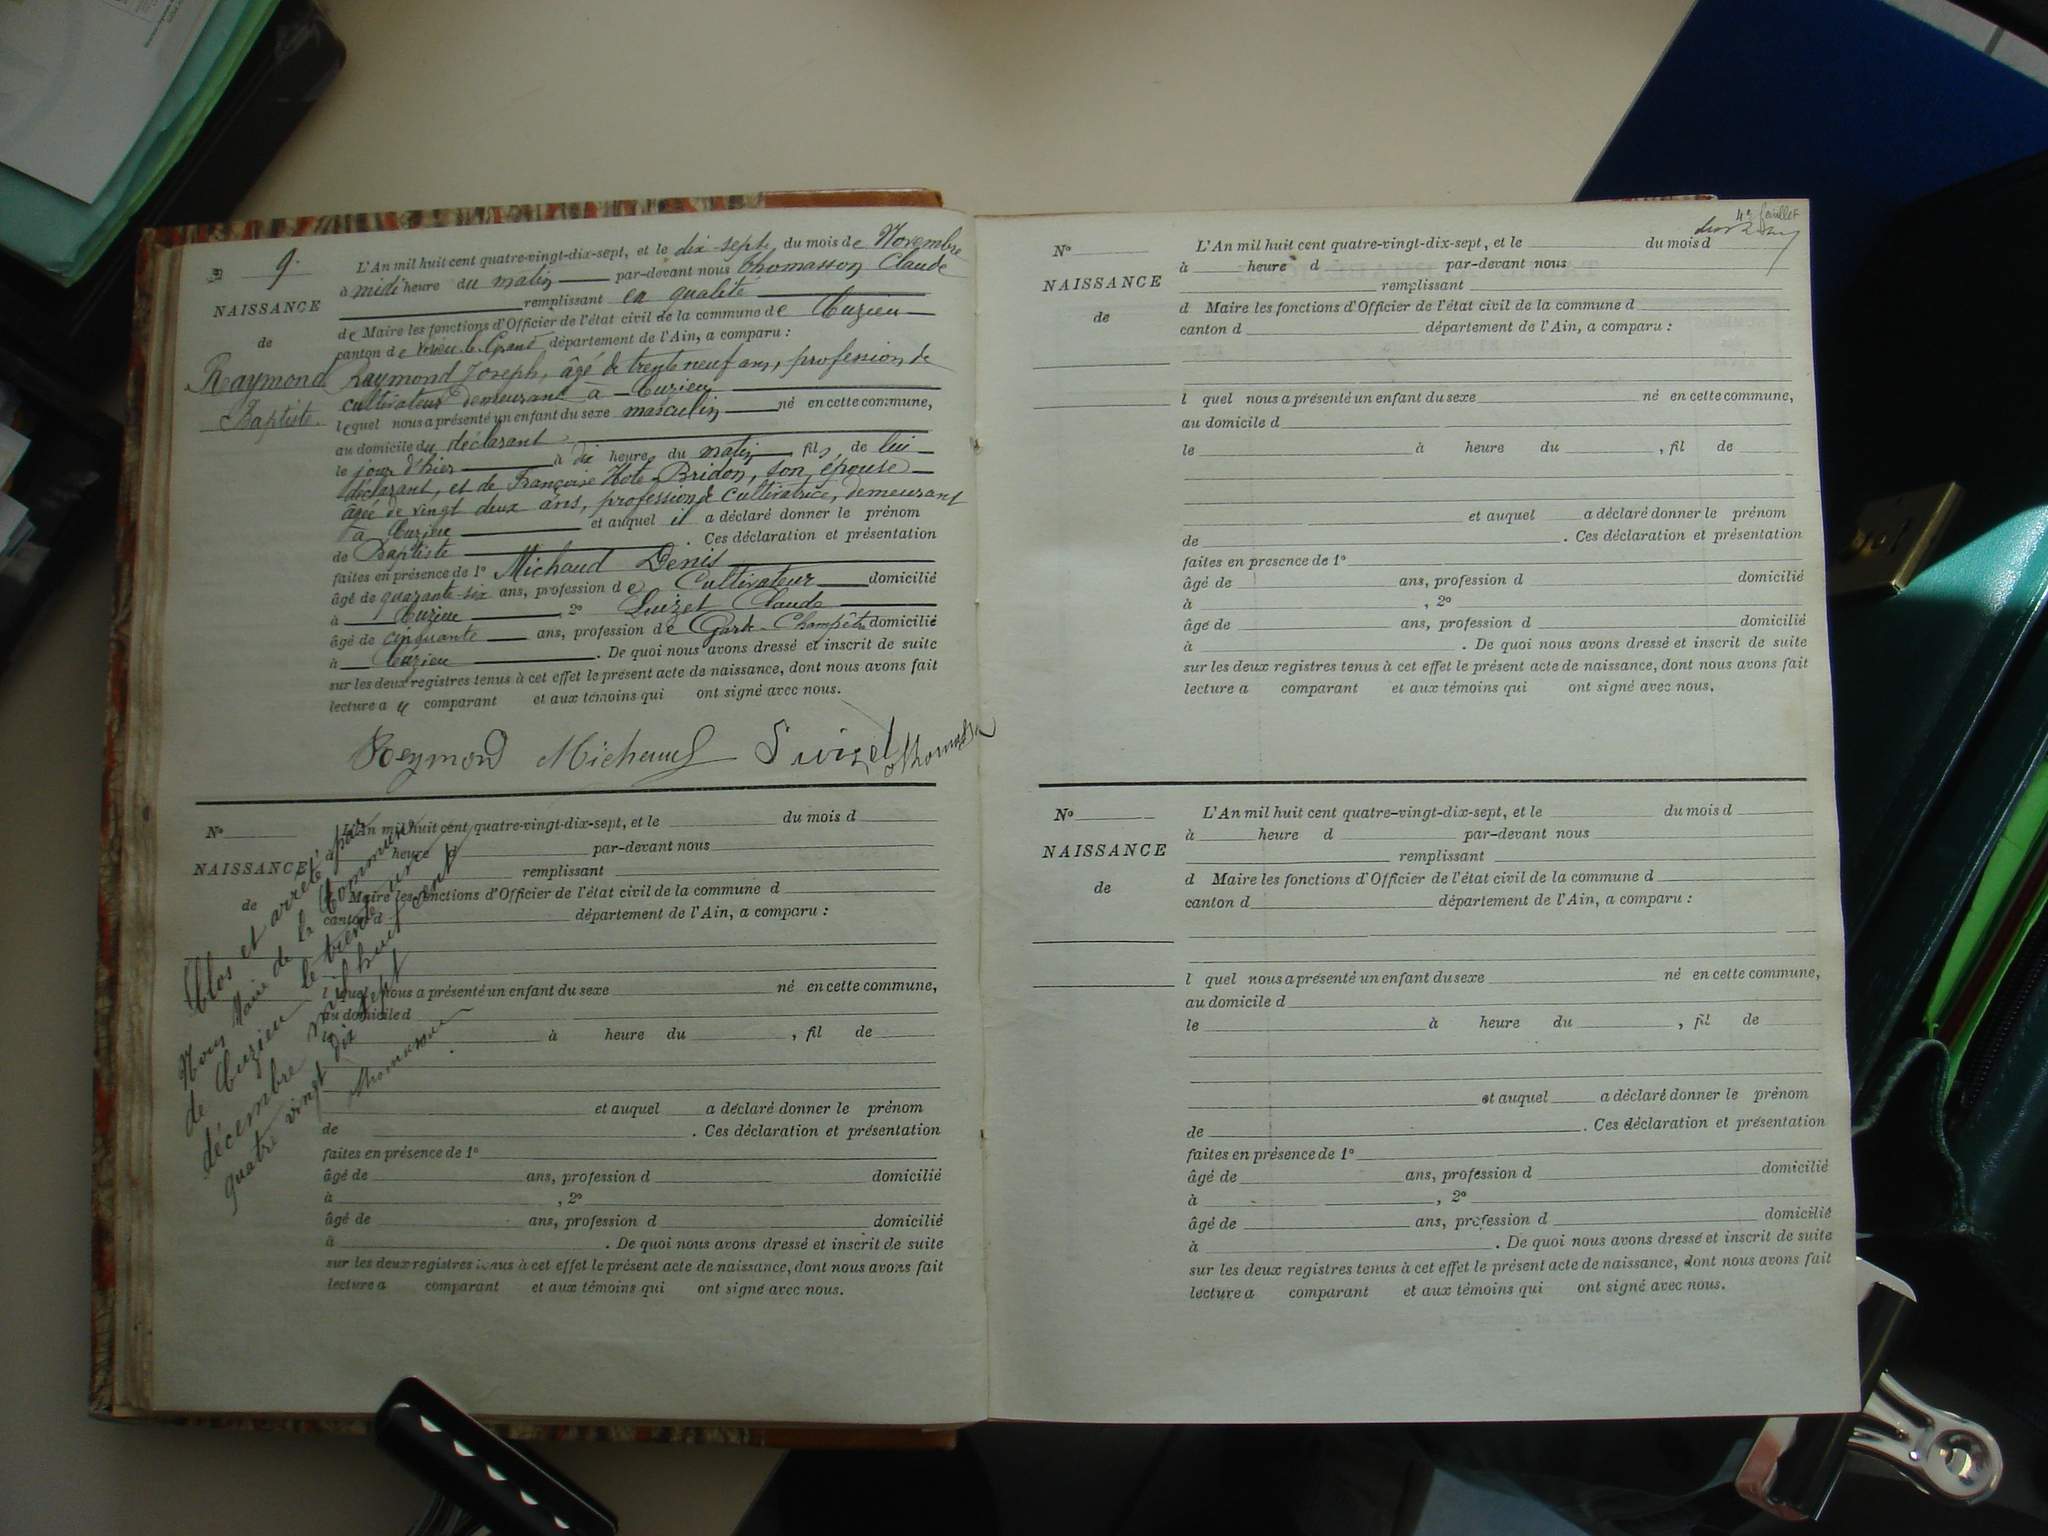 N° 9.
NAISSANCE
de
Raymond
Baptiste.
L'An mil huit cent quatre-vingt-dix-sept, et le dix-sept, du mois de Novembre
à midi heure du matin par-devant nous Thomasson Claude
remplissant en qualité
de Maire les fonctions d'Officier de l'état civil de la commune de Cuzieu
canton de Virieu-le-Grand département de l'Ain, a comparu :
Raymond Joseph, âgé de trente neuf ans, profession de
cultivateur demeurant à Cuzieu
lequel nous a présenté un enfant du sexe masculin né en cette commune,
au domicile du déclarant
le jour d'hier à dix heure du matin, fils de lui
déclarant, et de Françoise Hote-Bridon, son épouse
âgée de vingt deux ans, profession de cultivatrice, demeurant
à Cuzieu et auquel il a déclaré donner le prénom
de Baptiste. Ces déclaration et présentation
faites en présence de 1° Michaud Denis
âgé de quarante-six ans, profession de Cultivateur domicilié
à Cuzieu 2° Luizet Claude
âgé de cinquante ans, profession de Gard-Champêtre domicilié
à Cuzieu. De quoi nous avons dressé et inscrit de suite
sur les deux registres tenus à cet effet le présent acte de naissance, dont nous avons fait
lecture au comparant et aux témoins qui ont signé avec nous.
Reymond Michaud Luizet Thomasson
N°
NAISSANCE
de
L'An mil huit cent quatre-vingt-dix-sept, et le du mois d
à heure d par-devant nous
remplissant
d Maire les fonctions d'Officier de l'état civil de la commune d
canton d département de l'Ain, a comparu :
l quel nous a présenté un enfant du sexe né en cette commune,
au domicile d
le à heure du , fil de
et auquel a déclaré donner le prénom
de . Ces déclaration et présentation
faites en présence de 1°
âgé de ans, profession d domicilié
à , 2°
âgé de ans, profession d domicilié
à . De quoi nous avons dressé et inscrit de suite
sur les deux registres tenus à cet effet le présent acte de naissance, dont nous avons fait
lecture a comparant et aux témoins qui ont signé avec nous.
Clos et arrêté par
Nous Maire de la Commune
de Cuzieu le trente un
décembre mil huit cent
quatre vingt dix sept
Thomasson
4e feuillet
N°
NAISSANCE
de
L'An mil huit cent quatre-vingt-dix-sept, et le du mois d
à heure d par-devant nous
remplissant
d Maire les fonctions d'Officier de l'état civil de la commune d
canton d département de l'Ain, a comparu :
l quel nous a présenté un enfant du sexe né en cette commune,
au domicile d
le à heure du , fil de
et auquel a déclaré donner le prénom
de . Ces déclaration et présentation
faites en presence de 1°
âgé de ans, profession d domicilié
à , 2°
âgé de ans, profession d domicilié
à . De quoi nous avons dressé et inscrit de suite
sur les deux registres tenus à cet effet le présent acte de naissance, dont nous avons fait
lecture a comparant et aux témoins qui ont signé avec nous.
N°
NAISSANCE
de
L'An mil huit cent quatre-vingt-dix-sept, et le du mois d
à heure d par-devant nous
remplissant
d Maire les fonctions d'Officier de l'état civil de la commune d
canton d département de l'Ain, a comparu :
l quel nous a présenté un enfant du sexe né en cette commune,
au domicile d
le à heure du , fil de
et auquel a déclaré donner le prénom
de . Ces déclaration et présentation
faites en présence de 1°
âgé de ans, profession d domicilié
à , 2°
âgé de ans, profession d domicilié
à . De quoi nous avons dressé et inscrit de suite
sur les deux registres tenus à cet effet le présent acte de naissance, dont nous avons fait
lecture a comparant et aux témoins qui ont signé avec nous.